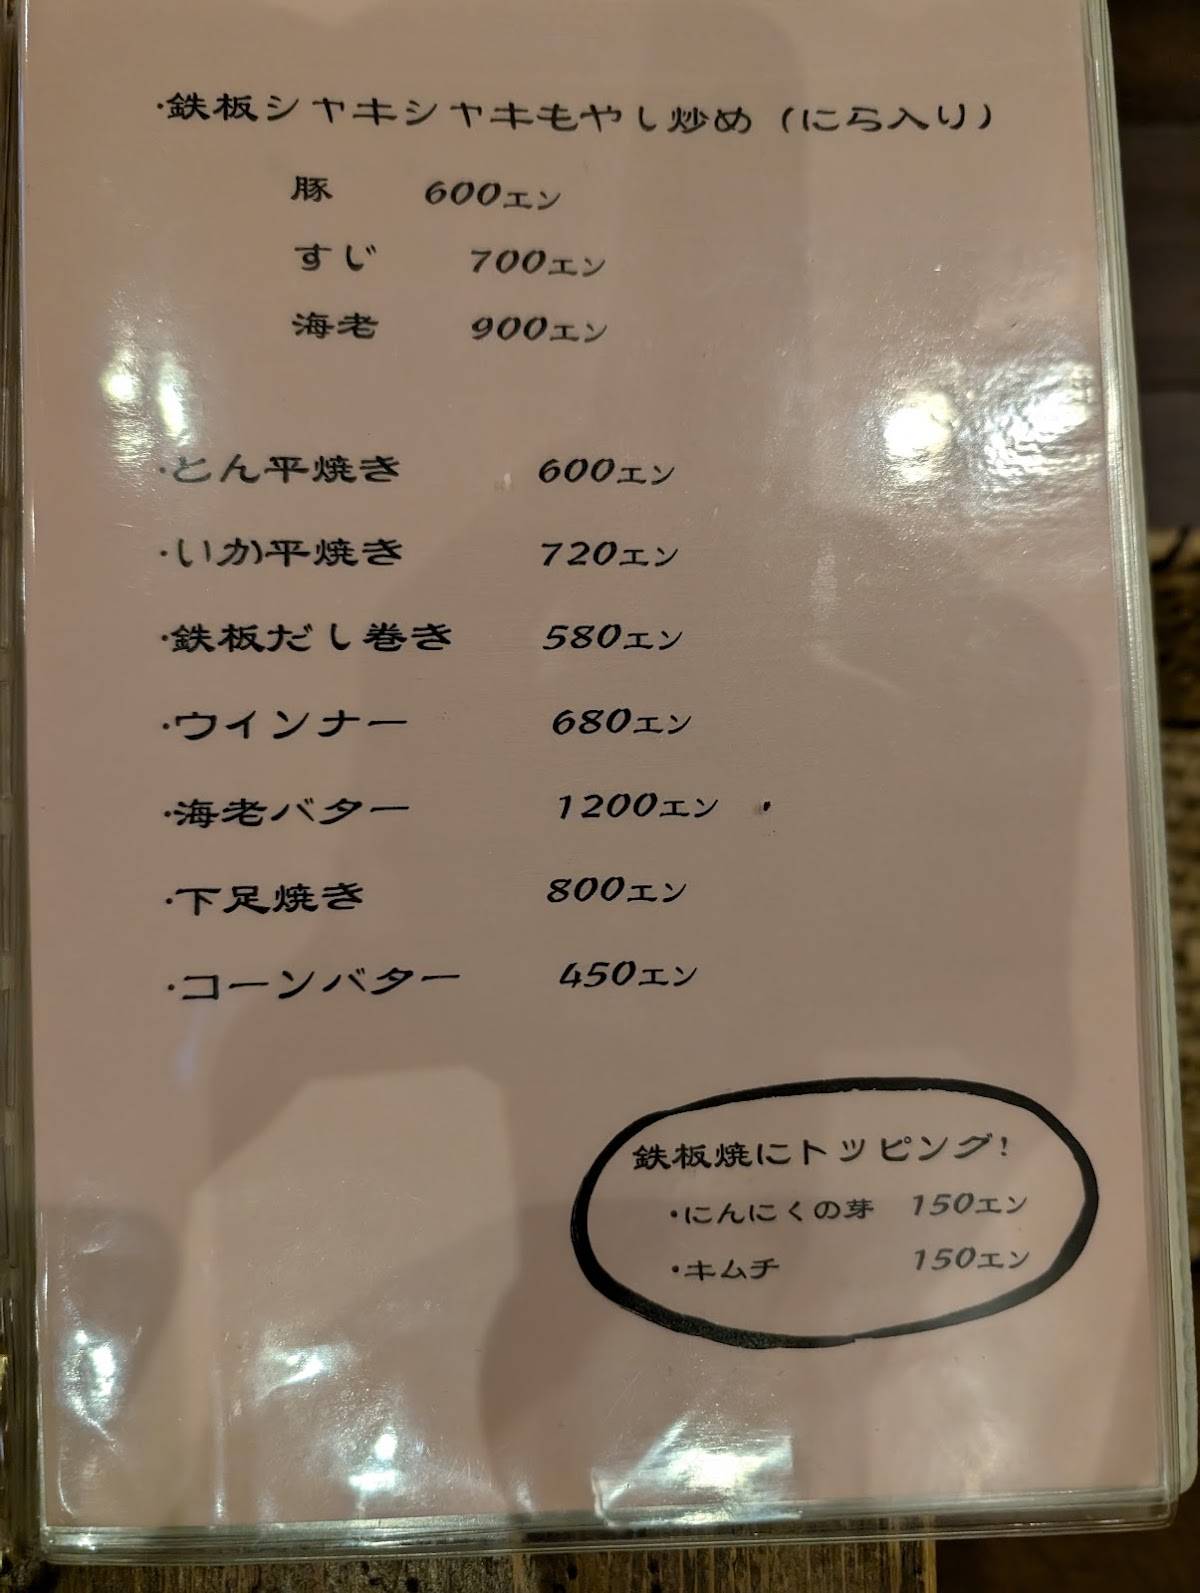 ・鉄板シャキシャキもやし炒め（にら入り）
豚 600エン
すじ 700エン
海老 900エン
・とん平焼き 600エン
・いか平焼き 720エン
・鉄板だし巻き 580エン
・ウインナー 680エン
・海老バター 1200エン
・下足焼き 800エン
・コーンバター 450エン
鉄板焼にトッピング!
・にんにくの芽 150エン
・キムチ 150エン